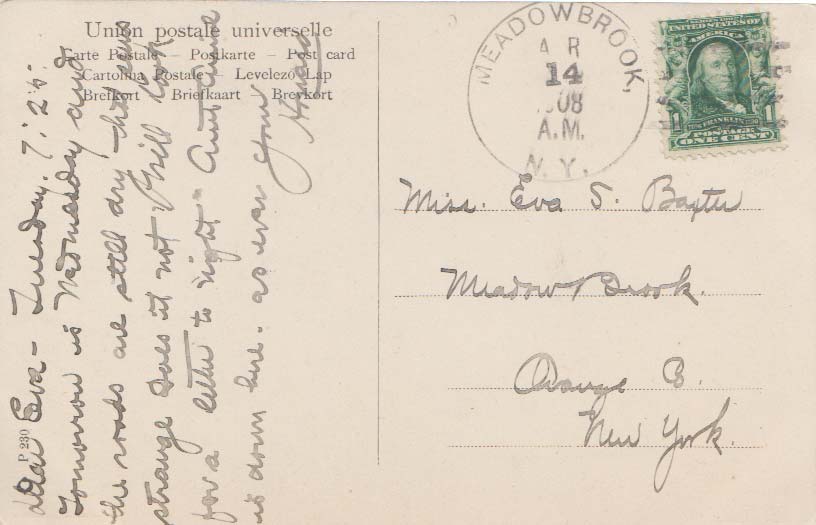 Union postale universelle
Carte Postale — Postkarte — Post card
Cartolina Postale — Levelező Lap
Brefkort — Briefkaart — Brevkort
MEADOWBROOK,
AR
14
1908
A.M.
N.Y.
SERIES 1902
UNITED STATES OF
AMERICA
FRANKLIN
1 1
POSTAGE
ONE CENT
Dear Eva - Tuesday. 7:25.
Tomorrow is Wednesday and
the roads are still dry - that seems
strange does it not. I will look
for a letter to night - Aunt
is down here. as ever your
P 230
Miss. Eva S. Baxter
Meadow Brook.
Orange Co.
New York.